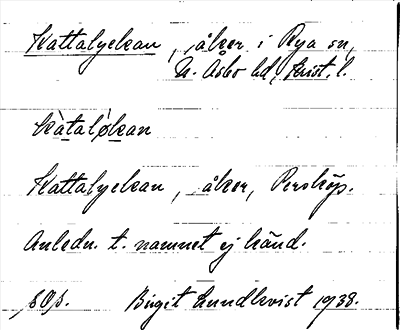 Kattalyckan, åker i Rya sn,
N. Åsbo hd, Krist. l.
kàtaløkan
Kattalyckan, åker, Perstorp.
Anledn. t. namnet ej känd.
Birgit Lundkvist 1938.